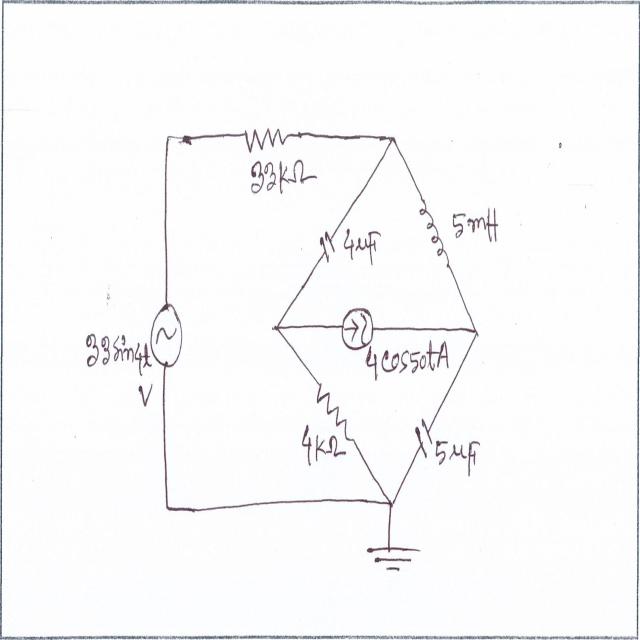 33kΩ
4μF
5mH
33sin4t
V
4cos50tA
4kΩ
5μF